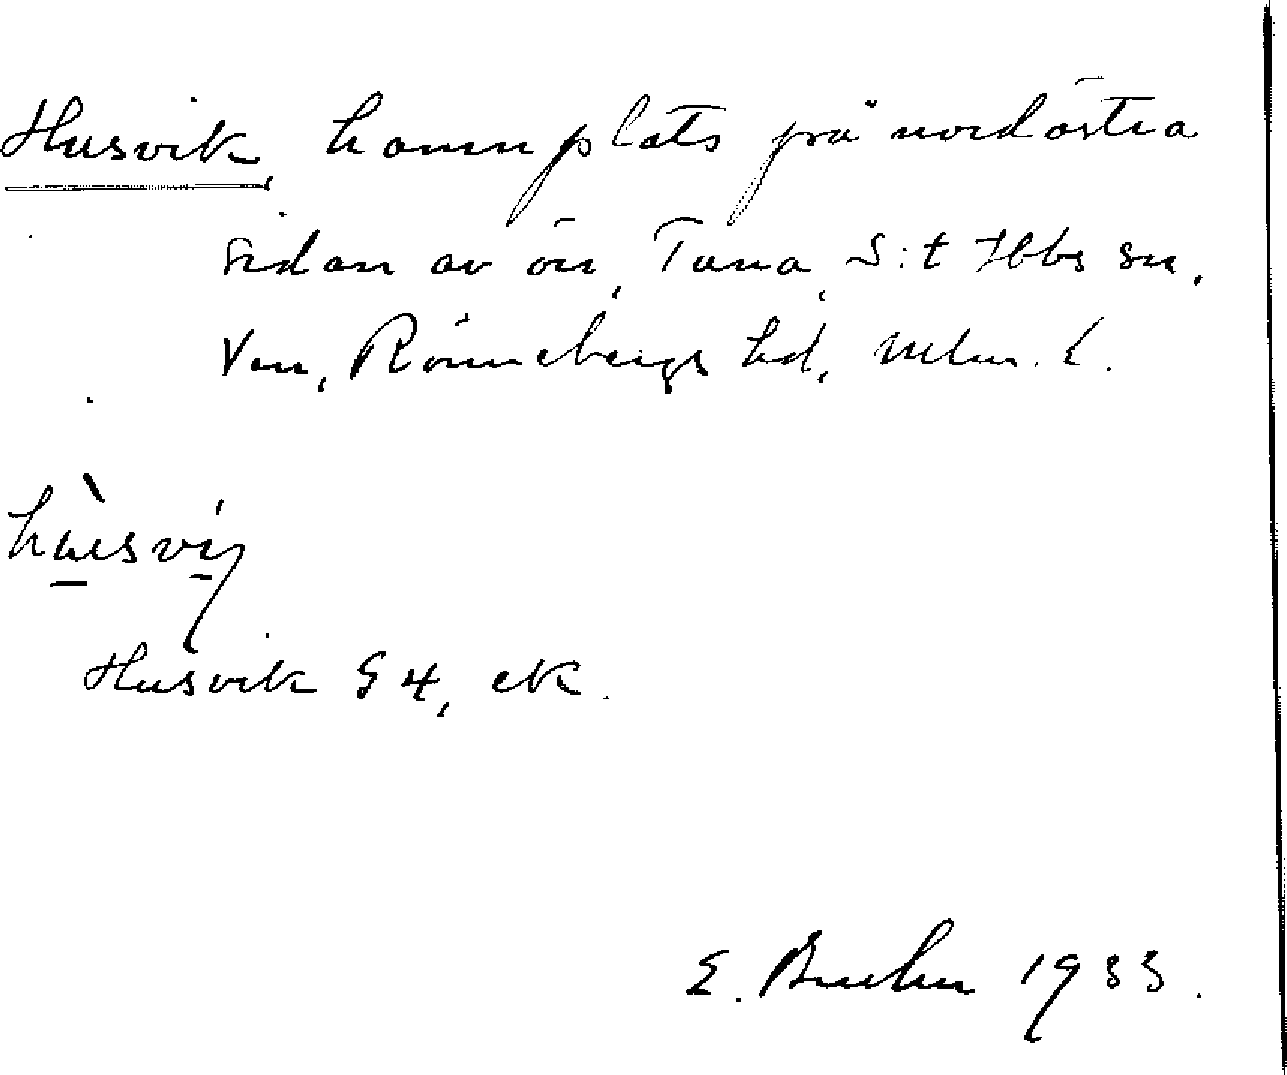 Husvik, hamnplats på nordöstra
sidan av ön, Tuna, S:t Ibbs sn,
Ven, Rönnebergs hd, Mlm. l.
hùsvíg
Husvik G4, ek.
E. 1933.